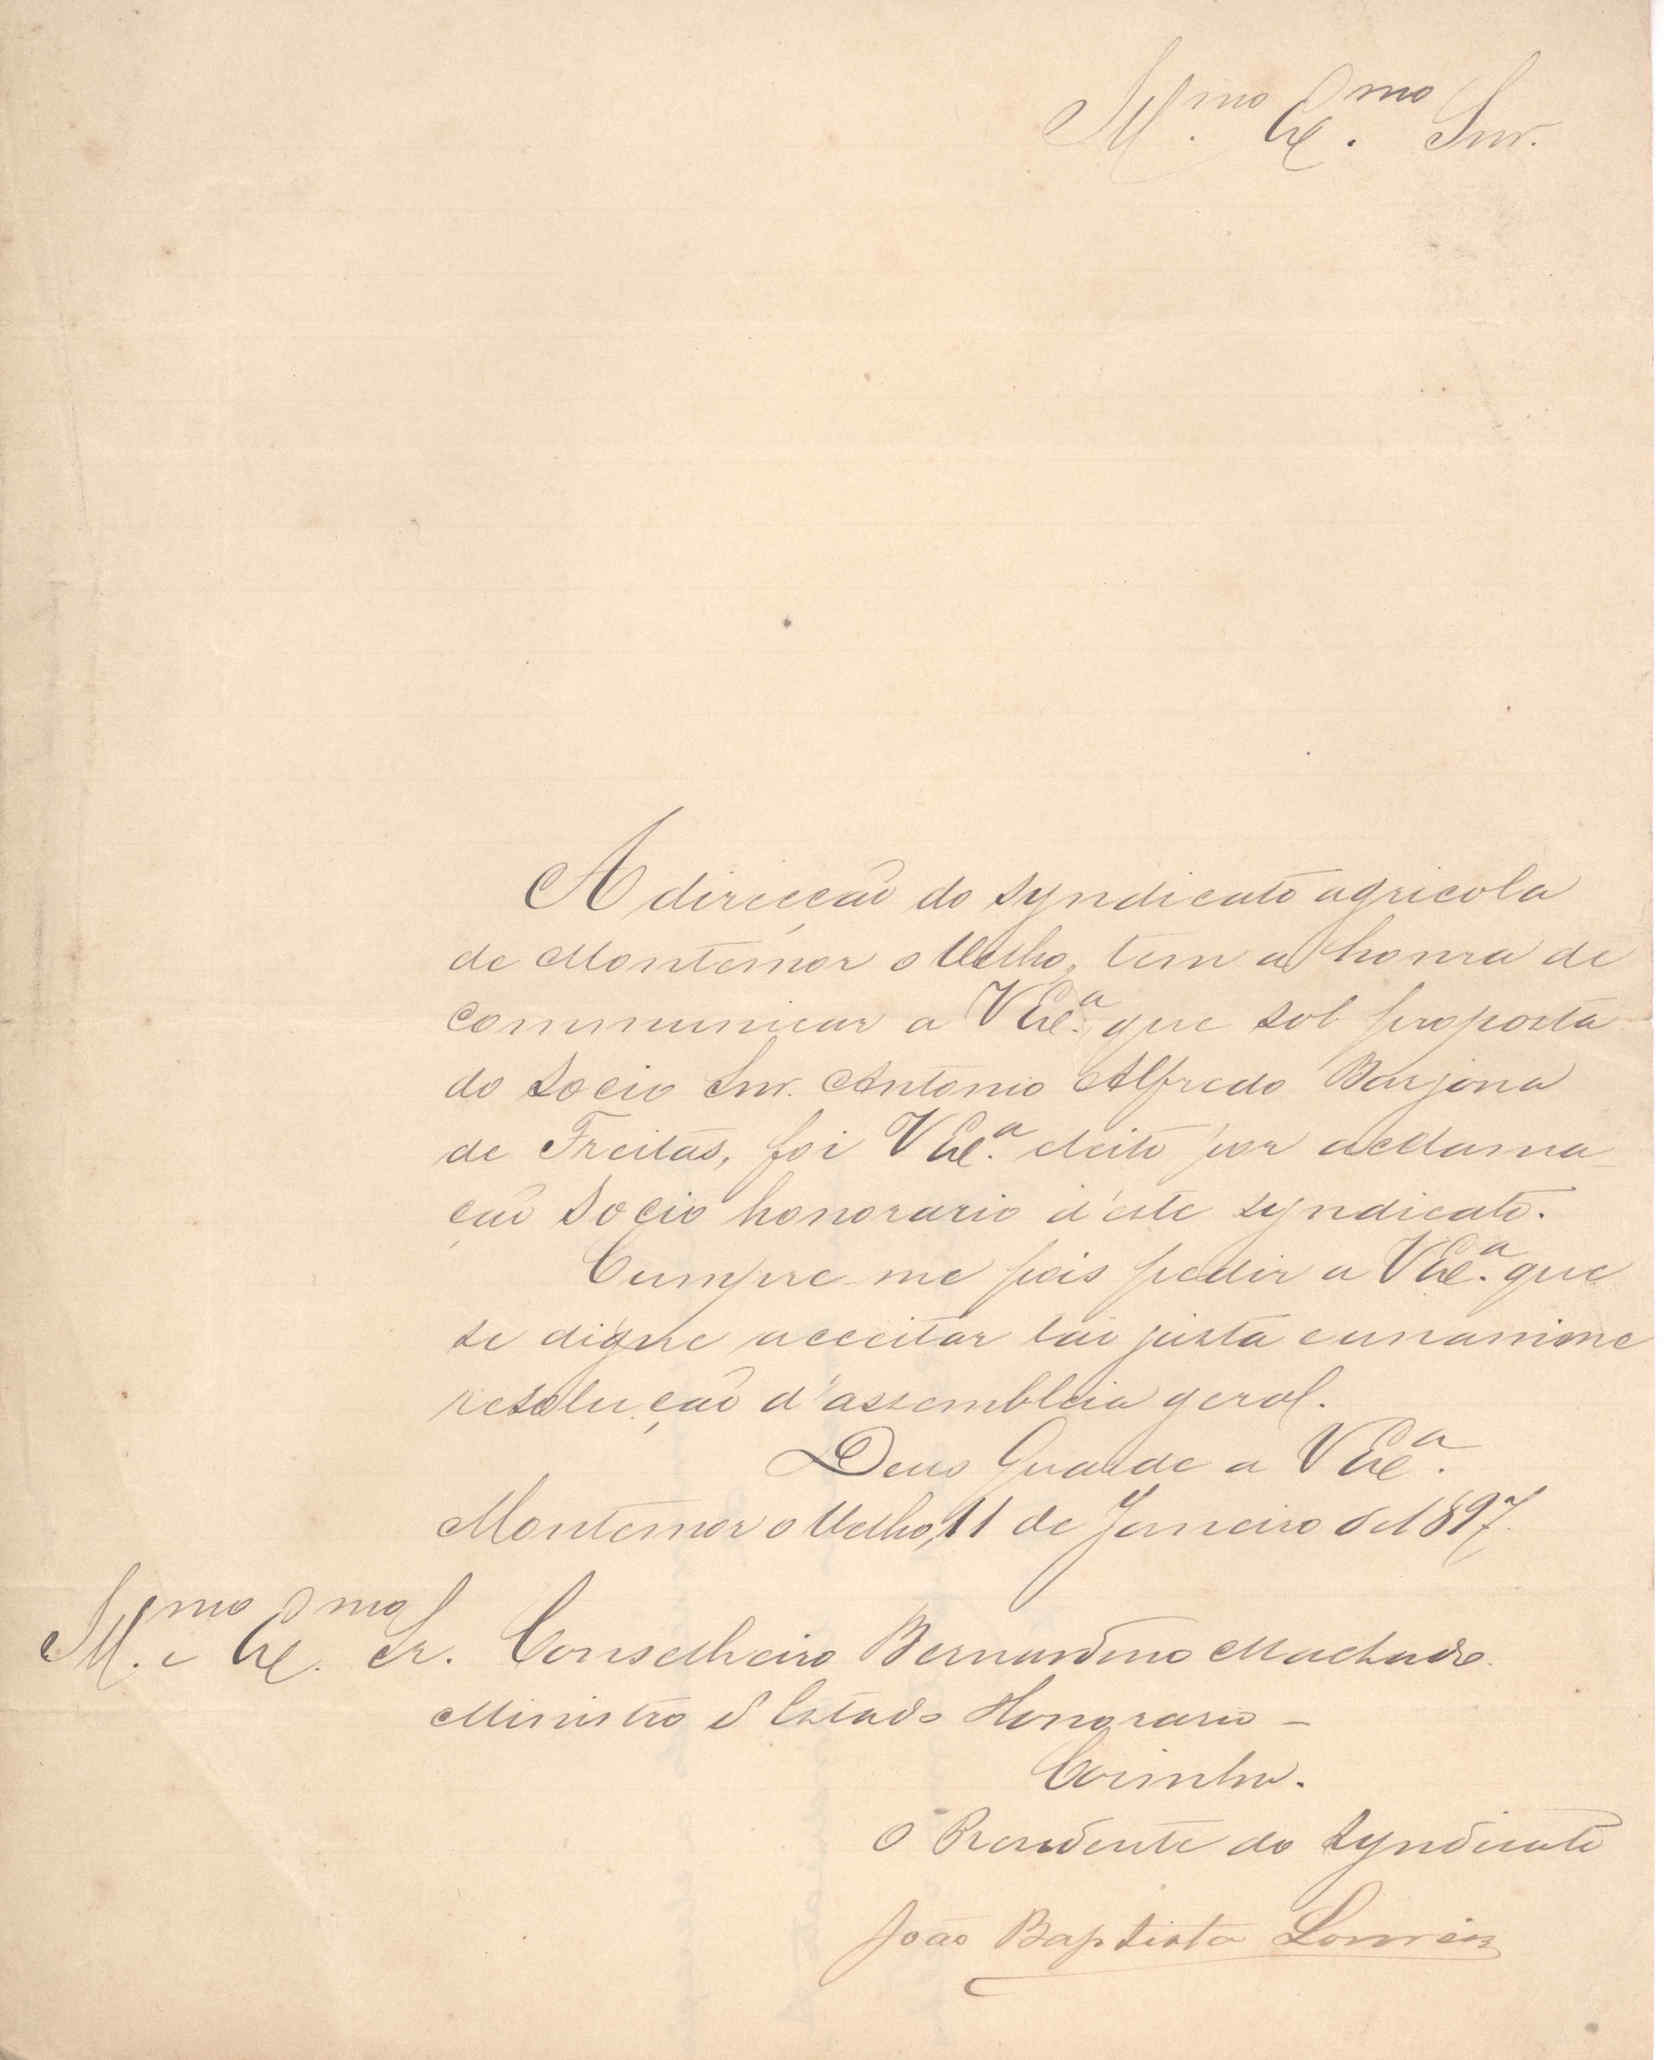 Ill.mo Ex.mo Snr.
A direcção do syndicato agricola
de Montemor o Velho, tem a honra de
communicar a V Ex.a que sob proposta
do socio Snr. Antonio Alfredo Barjona
de Freitas, foi V Ex.a eleito por acclama-
ção socio honorario d'este syndicato.
Cumpre-me pois pedir a V Ex.a que
se digne acceitar tão justa e unanime
resolução d'assembleia geral.
Deus Guarde a V Ex.a
Montemor o Velho, 11 de Janeiro de 1897.
Ill.mo e Ex.mo Sr. Conselheiro Bernardino Machado.
Ministro d'Estado Honorario –
Coimbra.
O Presidente do Syndicato
João Baptista